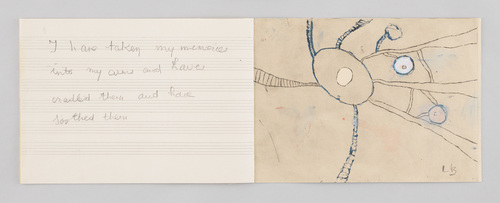 I have taken my memories
into my arms and have
cradled them and have
soothed them
L.B.